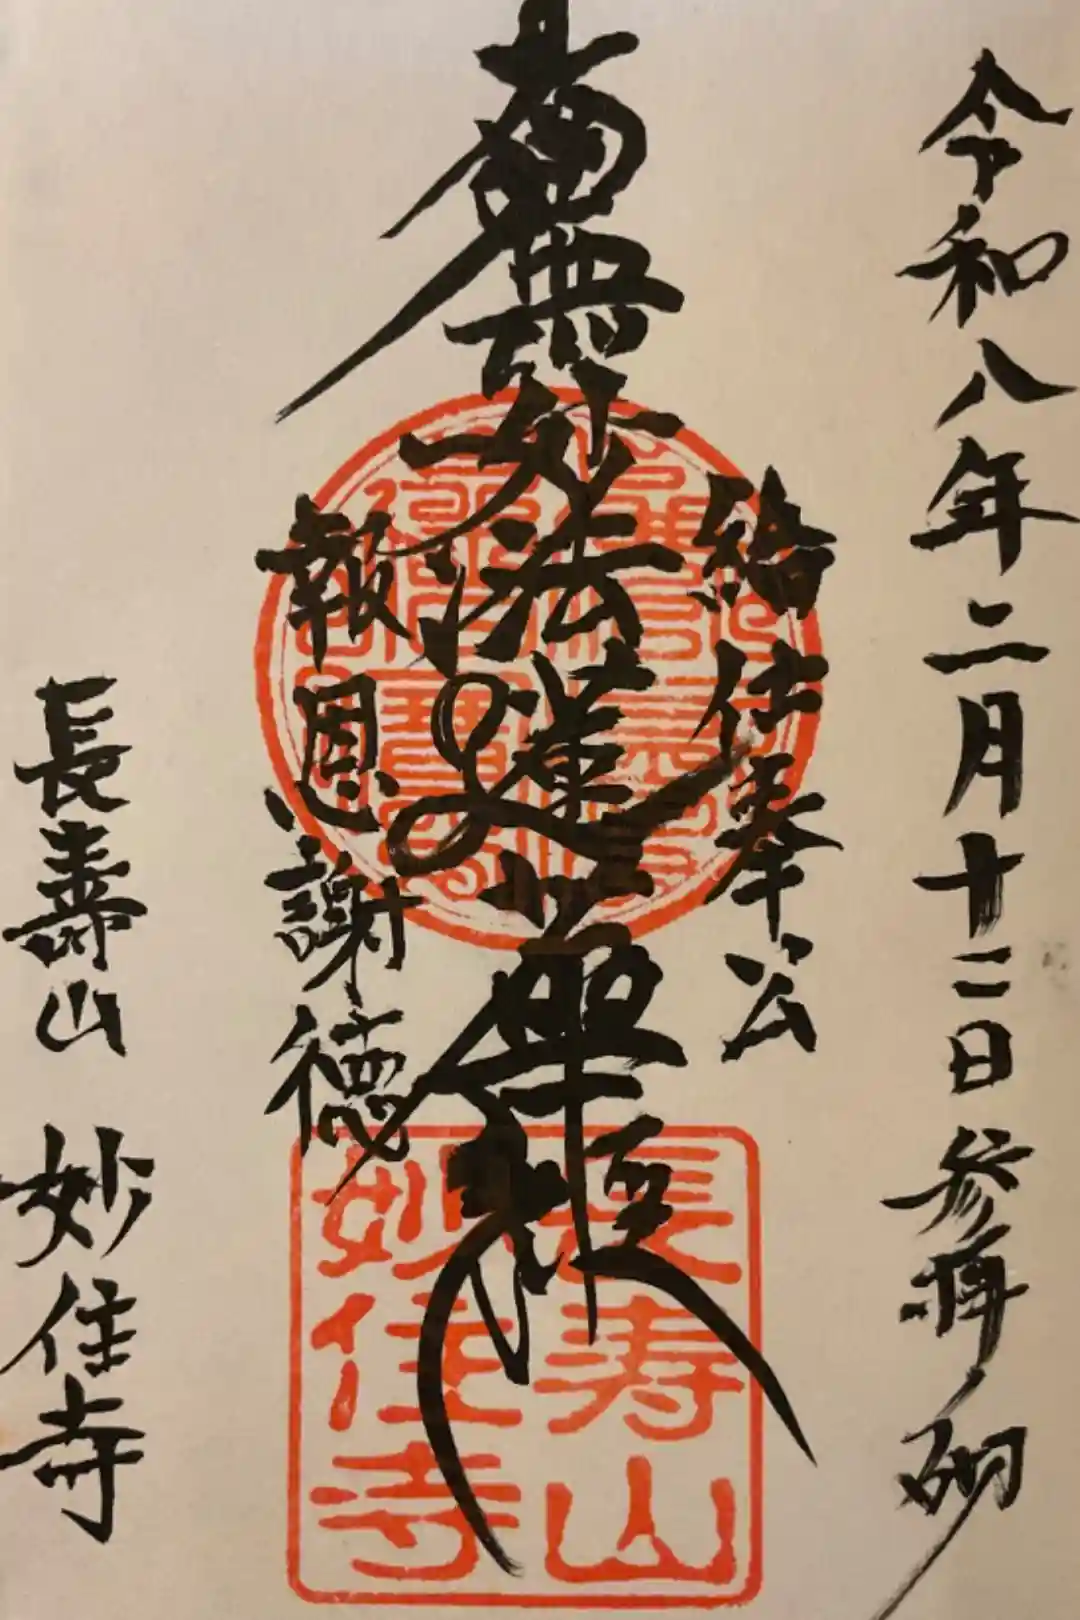 令和八年二月十二日参拝砌
給仕奉公
南無妙法蓮華経
報恩謝徳
長寿山 妙住寺
長寿山
妙住寺